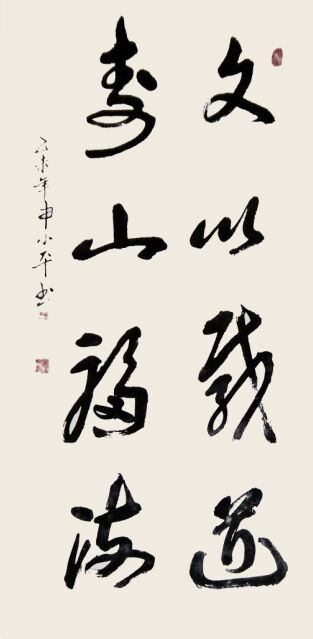 文以载道
寿山福海
癸未年申小平书